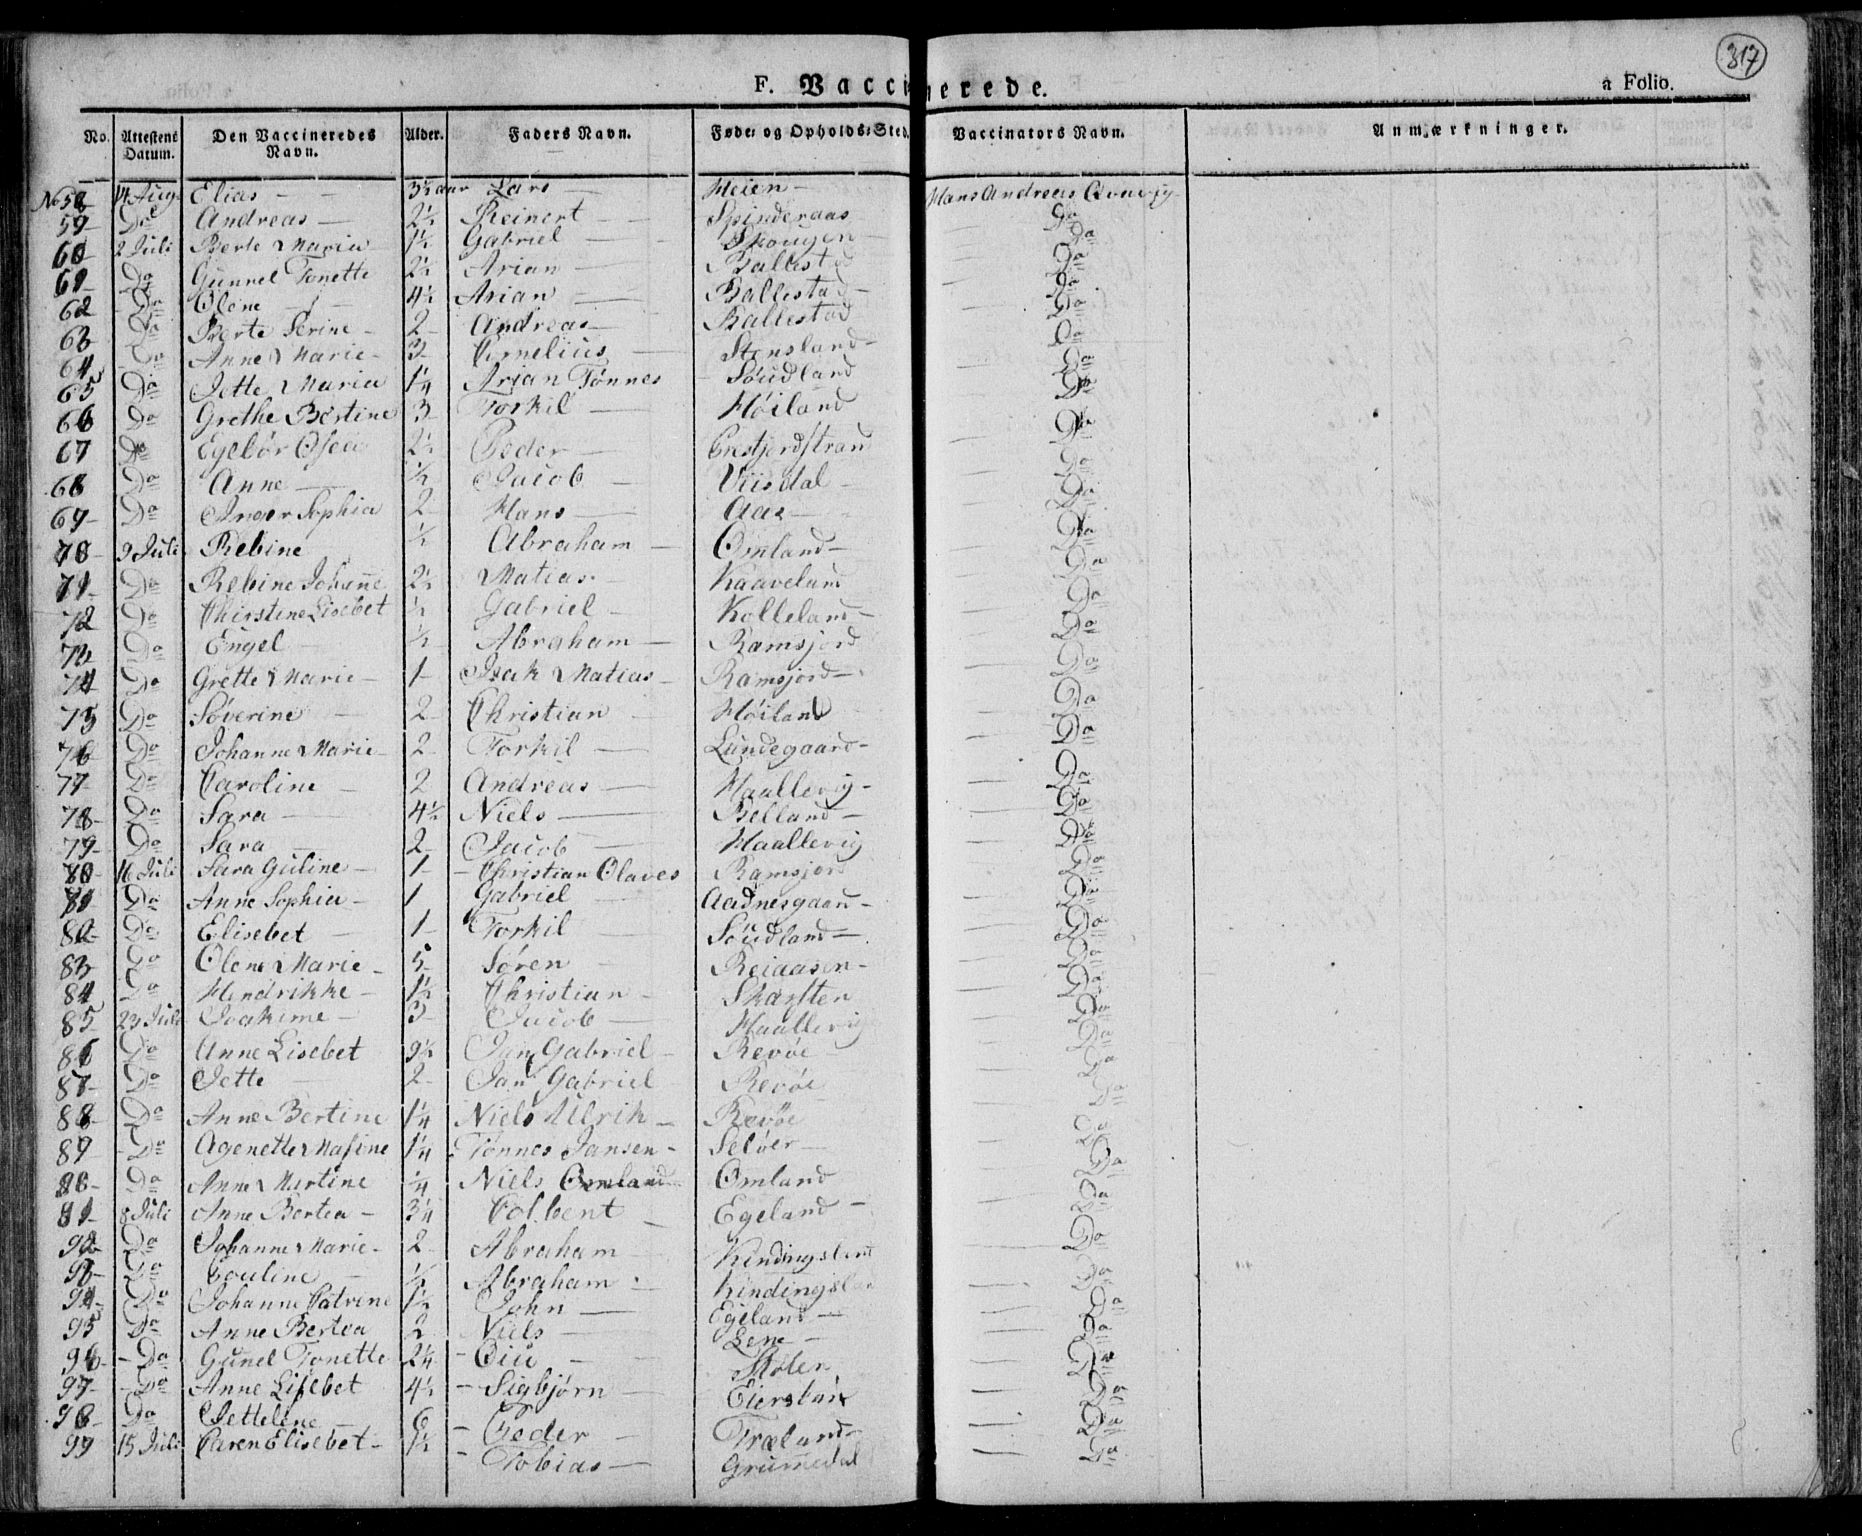 317
F. Vaccinerede.
a Folio.
No. Attestens Datum. Den Vaccineredes Navn. Alder. Faders Navn. Føde- og Opholds-Sted. Vaccinators Navn. Anmærkninger.
No 58 14 Aug. Elias 3½ aar Lars Heien Hans Andreas
59 Do Andreas 2½ Reinert Spinderaas Do
60 2 Juli Berte Maria 1½ Gabriel Skougen Do
61 Do Gunnel Tonette 2½ Arian Ballestad Do
62 Do Olene 4½ Arian Ballestad Do
63 Do Berte Serine 2 Andreas Ballestad Do
64 Do Anne Marie 3 Cornelius Stensland Do
65 Do Jette Maria 1¼ Arian Tønnes Søudland Do
66 Do Grethe Bertine 3 Torkil Høiland Do
67 Do Egelør Osea 2½ Peder Do
68 Do Anne ½ Jacob Viisdal Do
69 Do Inger Sophia 2 Hans Aas Do
70 9 Juli Rebine ½ Abraham Omland Do
71 Do Rebine Johanne 2½ Matias Kaaveland Do
72 Do Chirstine Lisebet ½ Gabriel Kolleland Do
73 Do Engel ½ Abraham Ramsjord Do
74 Do Grette Marie 1 Isak Matias Ramsjord Do
75 Do Søverine 2 Christian Høiland Do
76 Do Johanne Marie 2 Torkil Lundegaard Do
77 Do Caroline 2 Andreas Haallevig Do
78 Do Sara 4½ Niels Belland Do
79 Do Sara 2 Jacob Haallevig Do
80 16 Juli Sara Guline 1 Christian Olaves Ramsjord Do
81 Do Anne Sophia 1 Gabriel Aadnesgaard Do
82 Do Elisebet 1 Torkil Søudland Do
83 Do Olene Marie 5 Søren Reiaasen Do
84 Do Hendrikke 1½ Christian Skarsten Do
85 23 Juli Joakime 3 Jacob Haallevig Do
86 Do Anne Lisebet 9½ Jan Gabriel Revøe Do
87 Do Jette 2 Jan Gabriel Revøe Do
88 Do Anne Bertine 1¼ Niels Ulrik Revøe Do
89 Do Agenette Masine 1¼ Tønnes Jansen Seløer Do
80 Do Anne Martine ¼ Niels Omland Omland Do
81 8 Juli Anne Bertea 3¼ Colbent Egeland Do
92 Do Johanne Marie 2 Abraham Kindingsland Do
93 Do Pouline ½ Abraham Kindingsland Do
94 Do Johanne Catrine 1½ John Egeland Do
95 Do Anne Bertea 2 Niels Lene Do
96 Do Gunel Tonette 2¼ Støler Do
97 Do Anne Lisebet 4½ Sigbjørn Eiersland Do
98 Do Jettelene 6 Peder Træland Do
99 15 Juli Caren Elisebet 1½ Tobias Grummedal Do